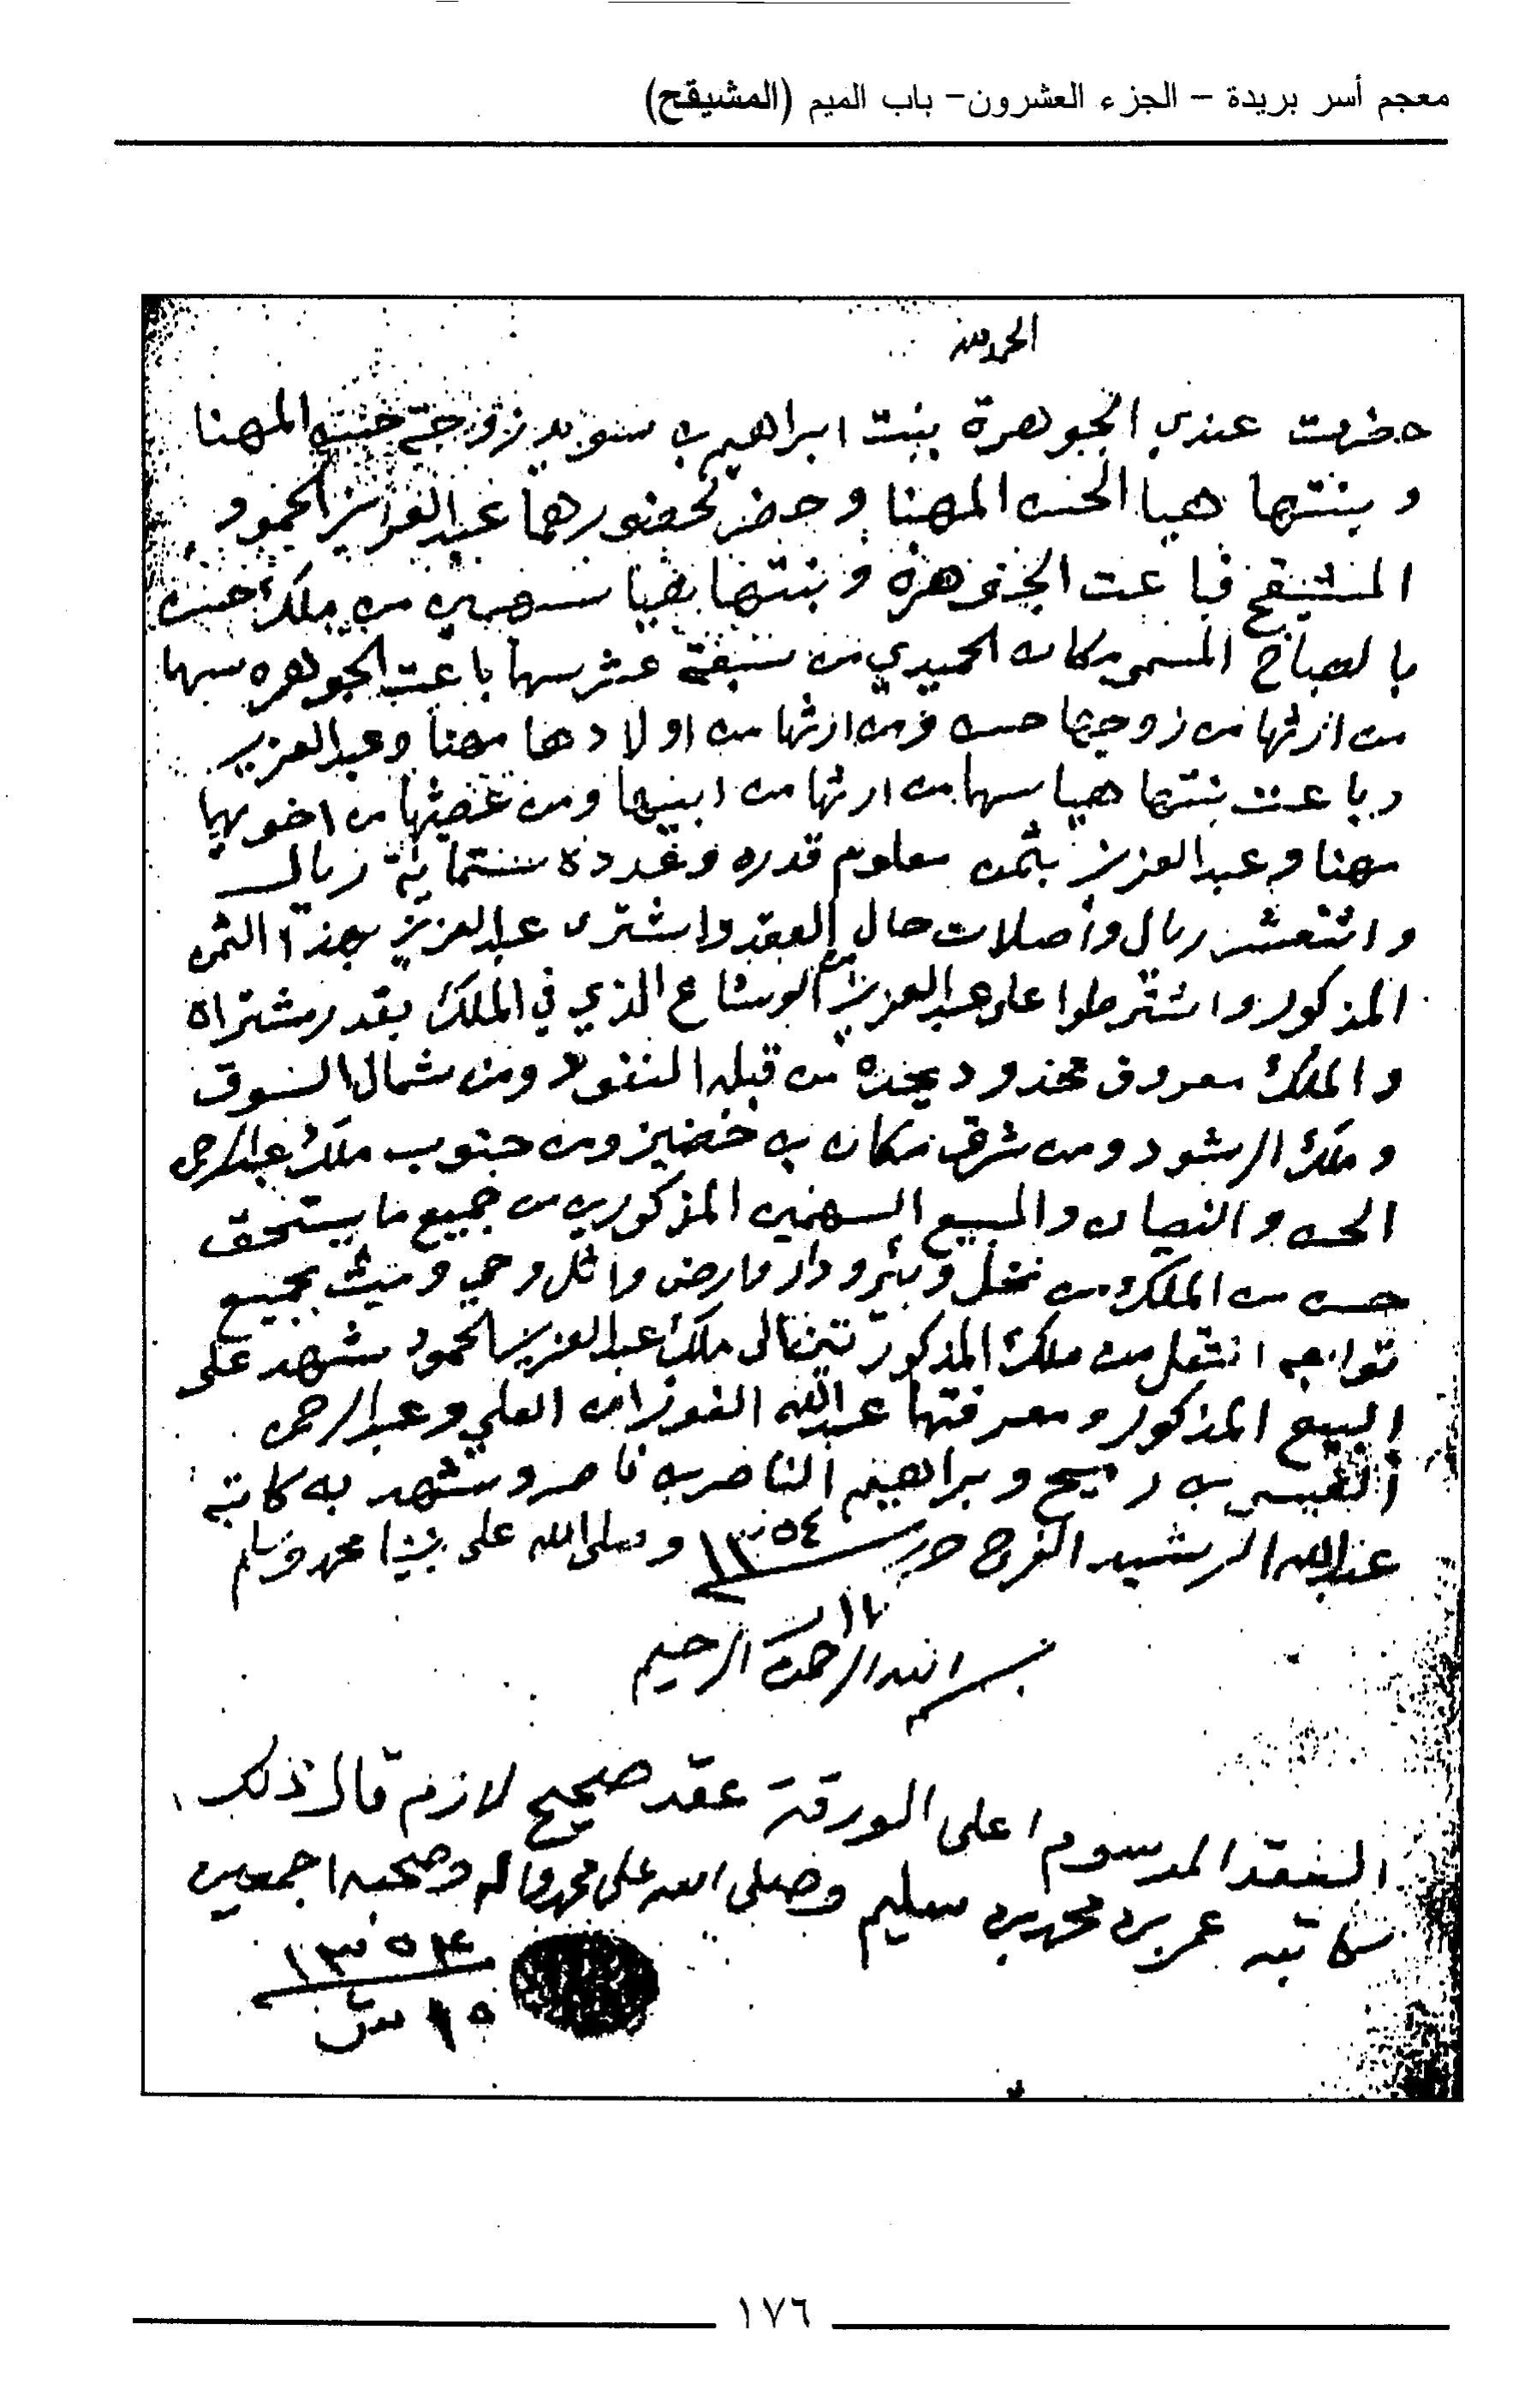 معجم أسر بريدة – الجزء العشرون– باب الميم (المشيقح)
الحمد لله
حضرت عندي الجوهرة بنت ابراهيم بن سويد زوجة حسن المهنا
و بنتها هيا الحسن المهنا وحضر لحضورهما عبدالعزيز الحمود
المشيقح فباعت الجوهرة وبنتها هيا سهمين من ملك حسن
بالصباخ المسمى مكان الحميدي من سبعة عشر سهما باعت الجوهره سهما
من ارثها من زوجها حسن ومن ارثها من اولادها مهنا وعبدالعزيز
وباعت بنتها هيا سهما من ارثها من ابيها ومن اخويها
مهنا وعبدالعزيز بثمن معلوم قدره وعدده ستماية ريال
واثنعشر ريال واصلات حال العقد واشترى عبدالعزيز بهذا الثمن
المذكور واشترطوا على عبدالعزيز الذي في الملك بقدر مشتراه
والملك معروف محدود يحده من قبله النفود ومن شمال السوق
وملك الرشود ومن شرق مكان بن خضير ومن جنوب ملك عبدالرحمن
الحسن والمبيع السهمين المذكورين من جميع ما يستحق
حسن من الملك من نخل وبئر ودار وارض واثل وحي وميت بجميع
توابعه انتقل من ملك المذكورتين الى ملك عبدالعزيز الحمود شهد على
البيع المذكور ومعرفتها عبدالله الفوزان العلي وعبدالرحمن
بن رميح وبراهيم الناصر بن ناصر وشهد به كاتبه
عبدالله الرشيد الفرج حرر ١٣٥٤ وصلى الله على نبينا محمد وسلم
بسم الله الرحمن الرحيم
العقد المرسوم اعلى الورقة عقد صحيح لازم قال ذلك
كاتبه عمر بن محمد بن سليم وصلى الله على محمد واله وصحبه اجمعين
١٣٥٤
١٥
١٧٦